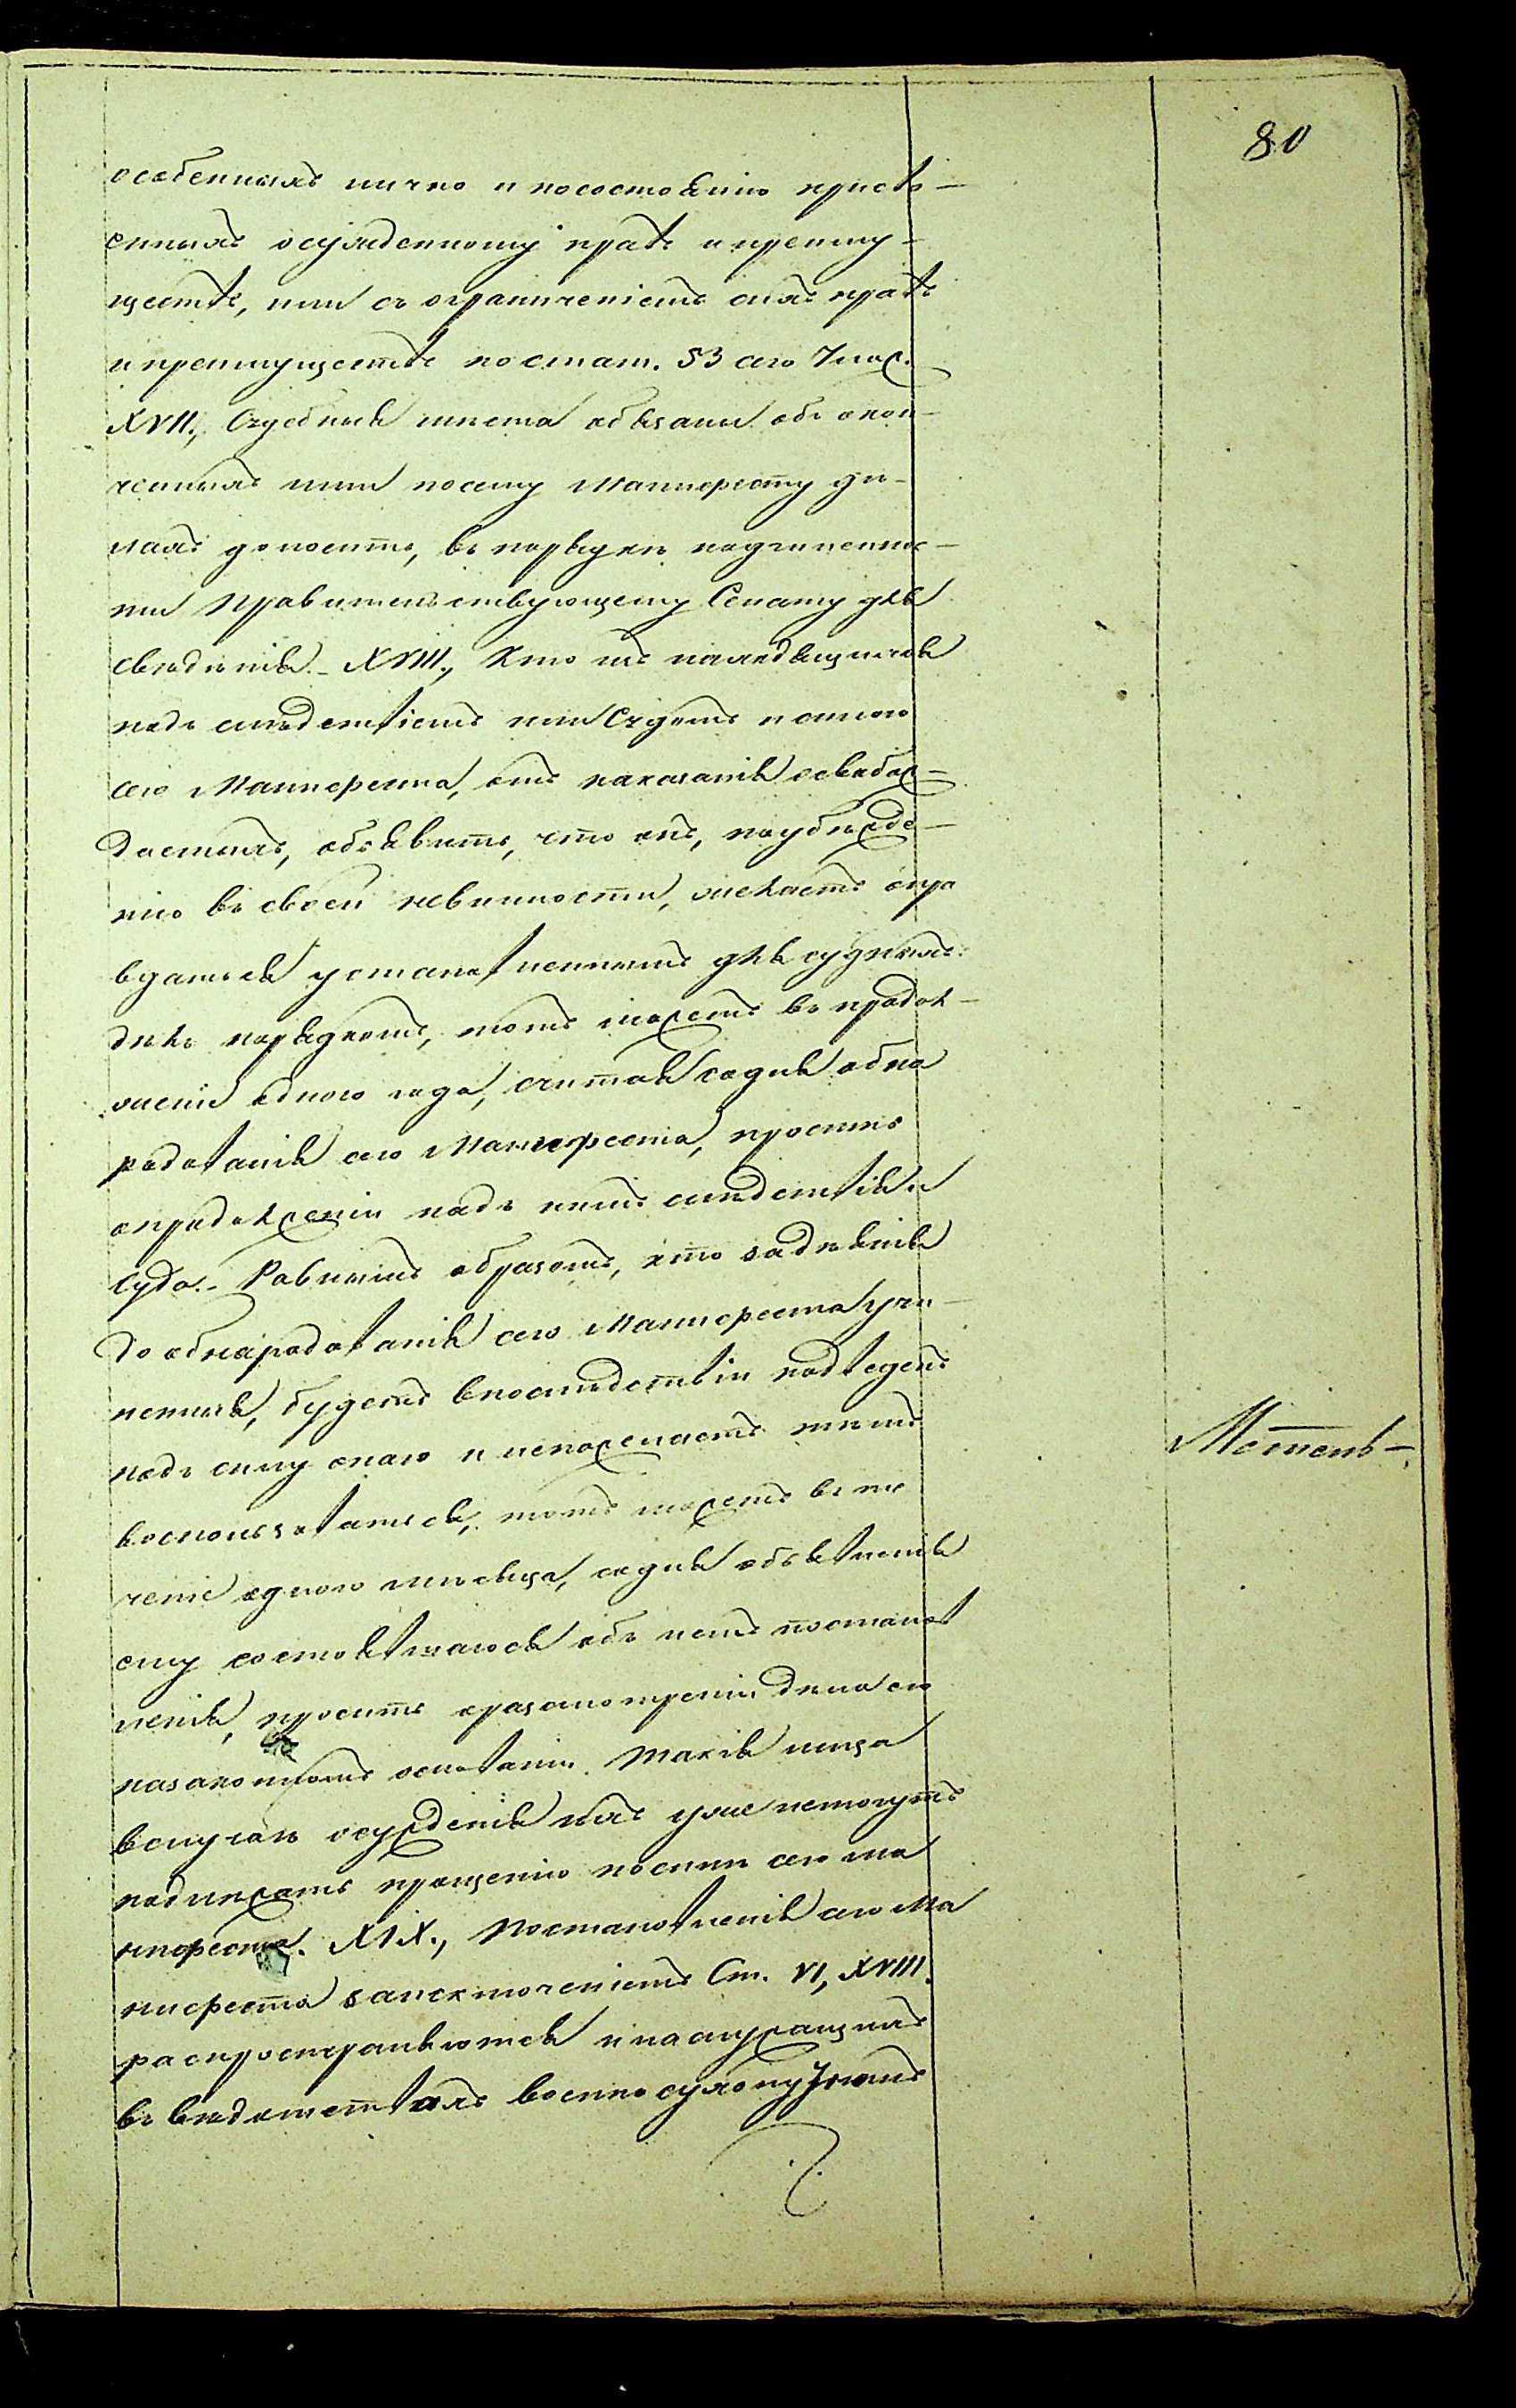 80
особенныхъ лично и посостоянію присво-
енныхъ осужденному правъ и преиму-
ществъ, или съ ограниченіемъ сихъ правъ
и преимуществъ по стат. 53 сего Улож.
XVII., Судебныя мѣста обязаны объ окон-
ченныхъ ими посему Манифесту дѣ-
лахъ доносить, въ порядкѣ подчиненнос-
ти Правительствующему Сенату для
свѣдѣнія. - XVIII., Кто изъ находящихся
подъ слѣдствіемъ или Судомъ и силою
сего Манифеста, отъ наказанія освобож-
даемыхъ, объявитъ, что онъ, поубѣжде-
нію въ своей невинности, желаетъ опра
вдаться установленнымъ для судныхъ
дѣлъ порядкомъ, тотъ можетъ въ продол-
женіе одного года, считая содня обна
родованія сего Манифеста, просить
опродолженіи надъ нимъ слѣдствія и
Суда. - Равнымъ образомъ, кто задѣянія
до обнародованія сего Манифеста учи-
ненныя, будетъ впослѣдствіи подведенъ
подъ силу онаго и непожелаетъ тѣмъ
воспользоваться, тотъ можетъ въ те
ченіе одного мѣсяца, содня объявленія
ему состоявшагося объ немъ постанов
ленія, просить оразсмотреніи дѣла его
назаконномъ основаніи. Такія лица
вслучаѣ осужденія ихъ уже немогутъ
подлежать прощенію посилѣ сего ма
нифеста. XIX., Постановленія сего Ма
нифеста заисключеніемъ Ст. VI, XVIII.
распространяются и наслужащихъ
въ вѣдомствахъ военно сухопутномъ